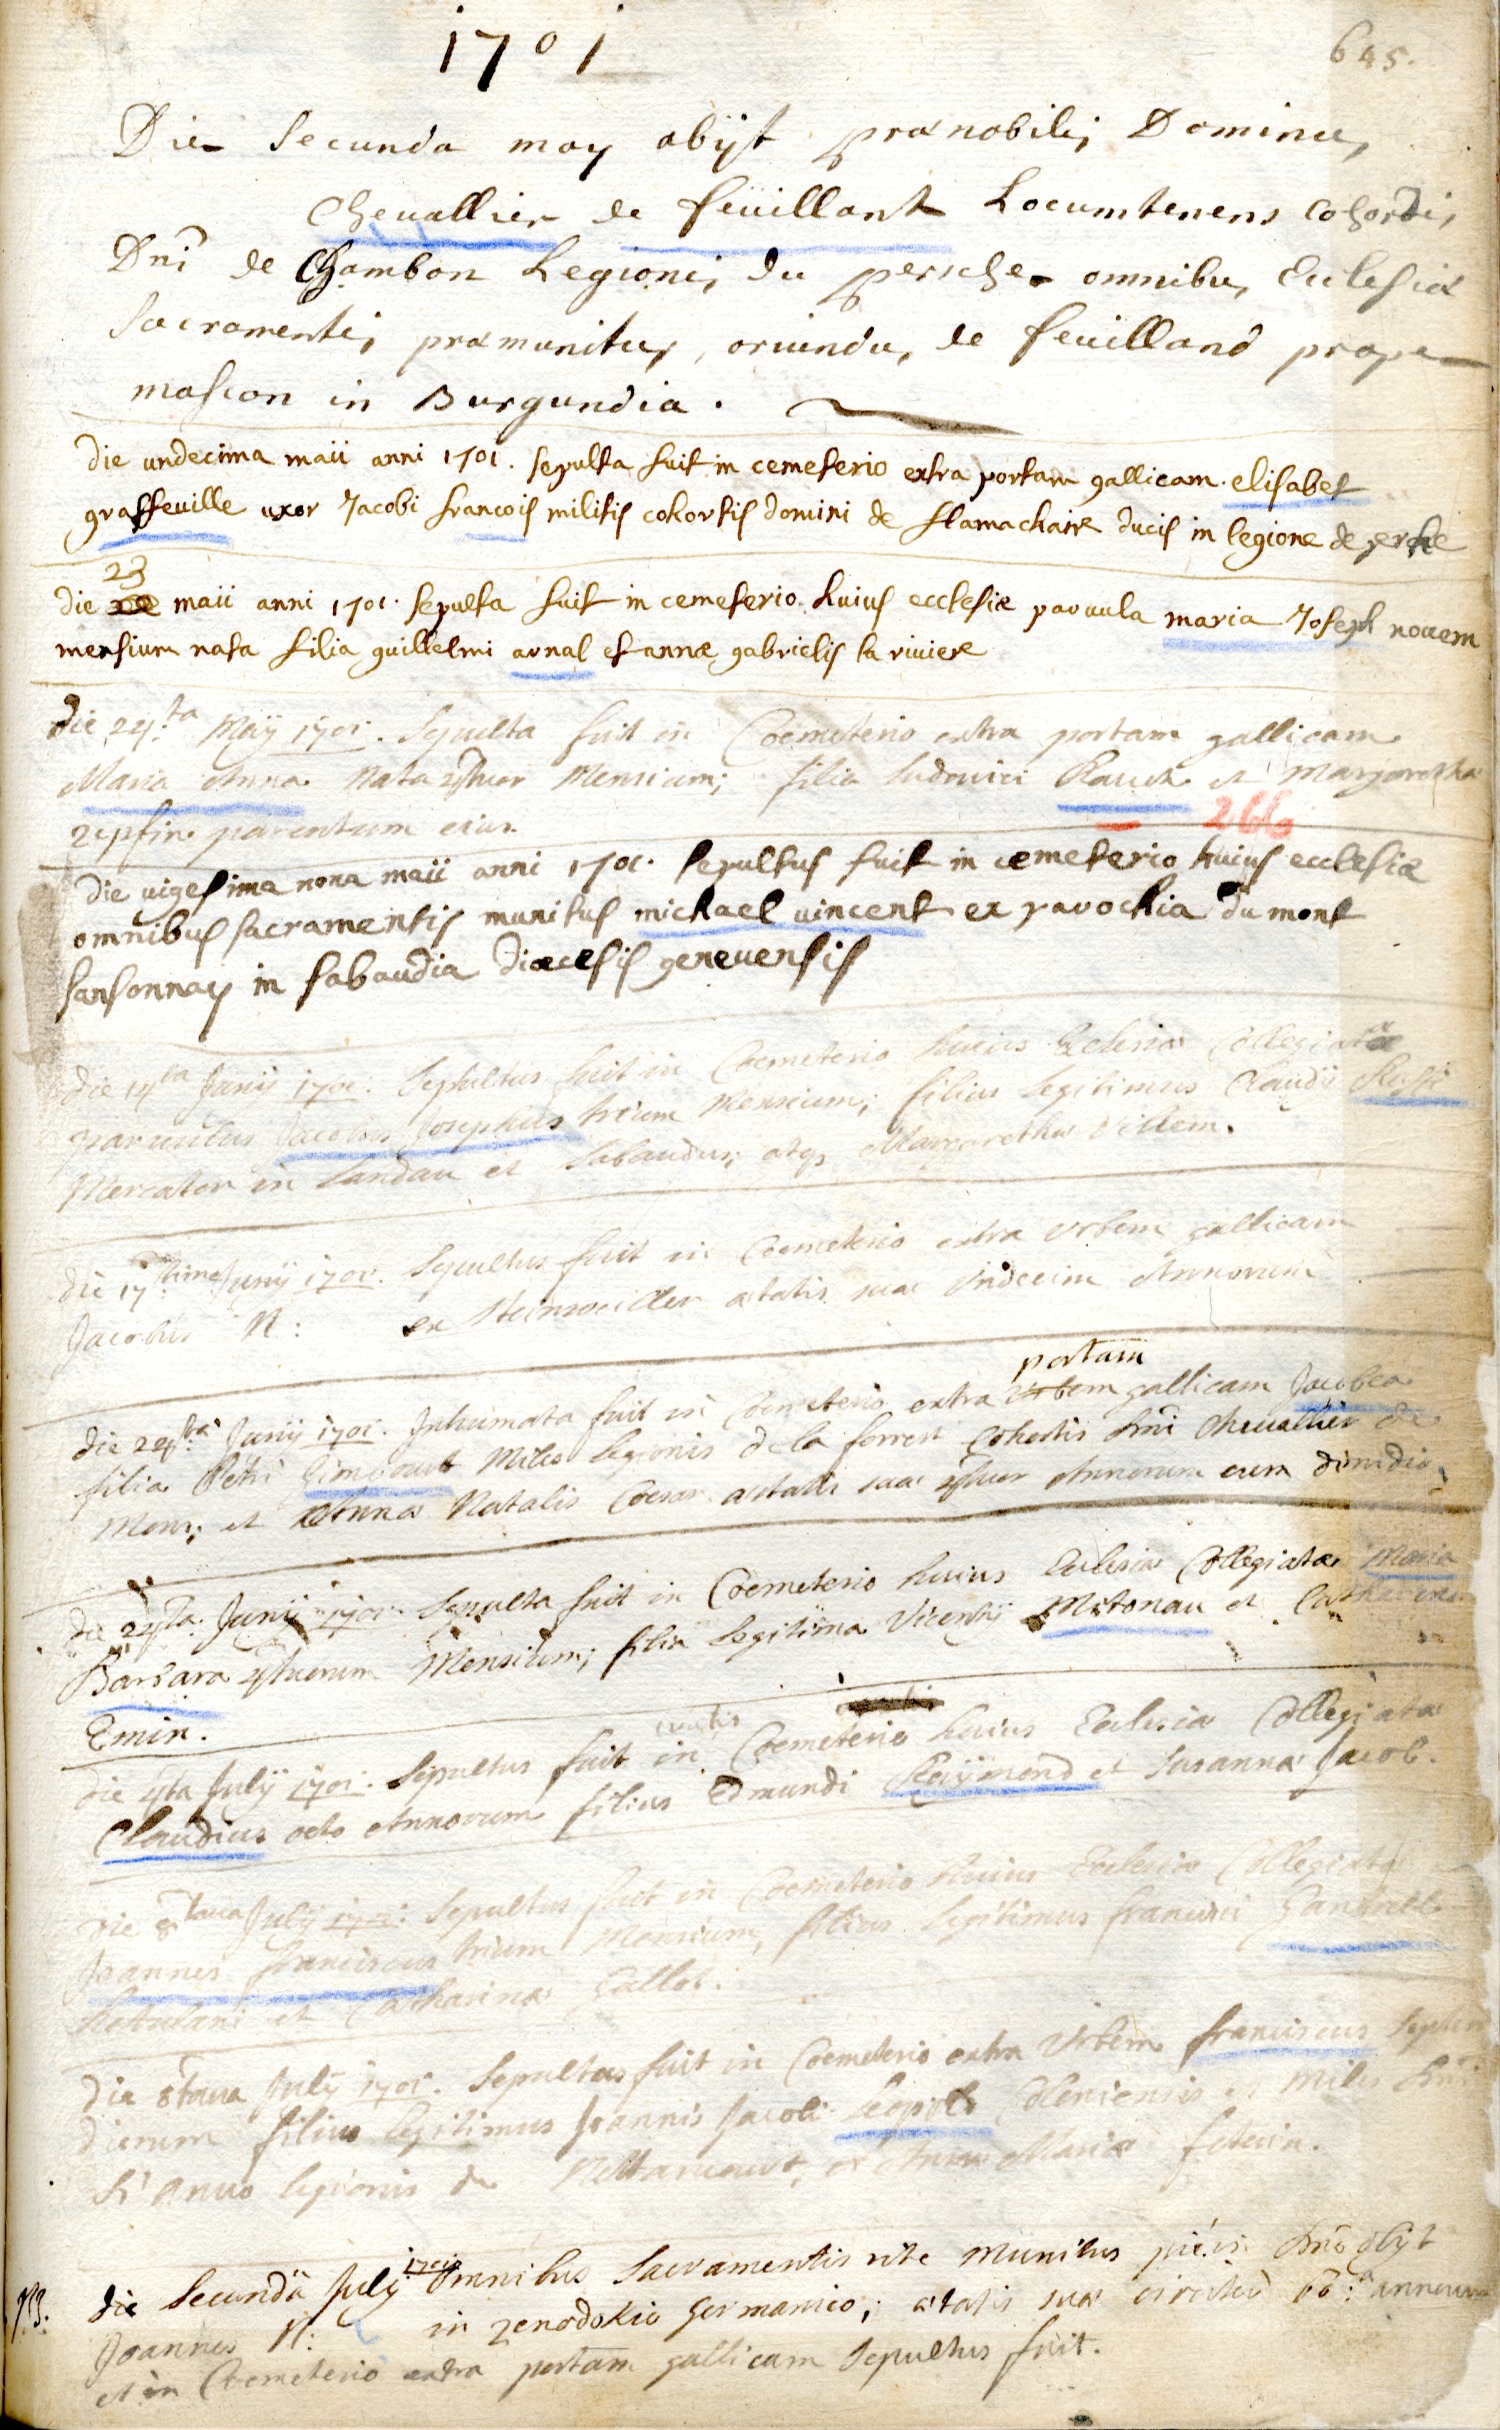 1701
645.
Die Secunda may obijt prænobilis Dominus
Cheuallier de feüillant Locumtenens Cohortis
Dni de Chambon Legionis du persche omnibus Ecclesiæ
Sacramentis præmunitus, oriundus de feuilland prope
mascon in Burgundia.
die undecima maii anni 1701. sepulta fuit in cemeterio extra portam gallicam elisabet
graffeuille uxor Jacobi francois militis cohortis domini de flamachaire ducis in legione de perche
23
die maii anni 1701. sepulta fuit in cemeterio huius ecclesiæ paruula maria Joseph nouem
mensium nata filia guillelmi arnal et annæ gabrielis la riviere
die 24.ta Maÿ 1701. Sepulta fuit in Coemeterio extra portam gallicam
Maria Anna Nata 4tuor Mensium; filia Ludovici Rauch et Margaretha
zepfin parentum eius.
266
die uigesima nona maii anni 1701. sepultus fuit in cemeterio huius ecclesiæ
omnibus sacramentis munitus michael uincent ex parochia du mont
sansonnay in sabaudia diæcesis geneuensis
die 14ta Junij 1701. Sepultus fuit in Coemeterio huius Ecclesiæ Collegiatæ
parvulus Jacobus Josephus trium Mensium; filius legitimus Claudij
Mercator in Landau et Sabaudus; atq3 Margaretha Villem.
die 17.timo Junij 1701. Sepultus fuit in Coemeterio extra Urbem gallicam
Jacobus N: ex Steinweiller ætatis suæ Undecim Annorum
portam
die 24ta Junij 1701. Inhumata fuit in Coemeterio extra Urbem gallicam Jacobea
filia Petri Miles legionis de la ferrest Cohortis Dni Cheuallier de
Mons; et Anna Natalis ætatis suæ 4tuor Annorum cum dimidio.
die 24ta Junij 1701. Sepulta fuit in Coemeterio huius Ecclesiæ Collegiatæ Maria
Barbara 4tuorum Mensium; filia legitima Vicentij Motonau et
Emin.
die 4ta Julÿ 1701. Sepultus fuit in Coemeterio huius Ecclesiæ Collegiatæ
Claudius octo Annorum filius Edmundi Reÿmond et Susanna Jacob.
die 8tava Julij 1701. Sepultus fuit in Coemeterio huius Ecclesiæ Collegiatæ
Joannes franciscus trium Mensium, filius legitimus francisci
et Catharina Gallot.
die 8tava Julÿ 1701. Sepultus fuit in Coemeterio extra Urbem franciscus
dierum filius legitimus Joannis Jacobi Leopold et Miles Dni
legionis de et Anna Maria
1701
NB: die Secundâ Julÿ omnibus Sacramentis rite Munitus Dno obÿt
Joannes N: in zenodokio Germanico; ætatis suæ annorum
et in Coemeterio extra portam gallicam Sepultus fuit.